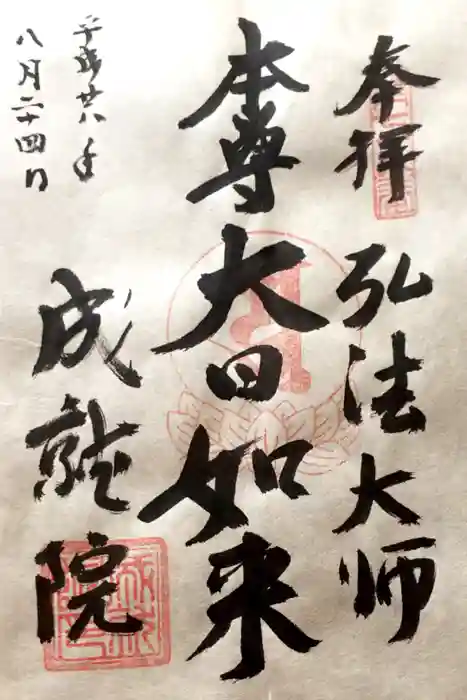 奉拝
弘法大师
本尊大日如来
平成廿八年
八月二十四日
成就院